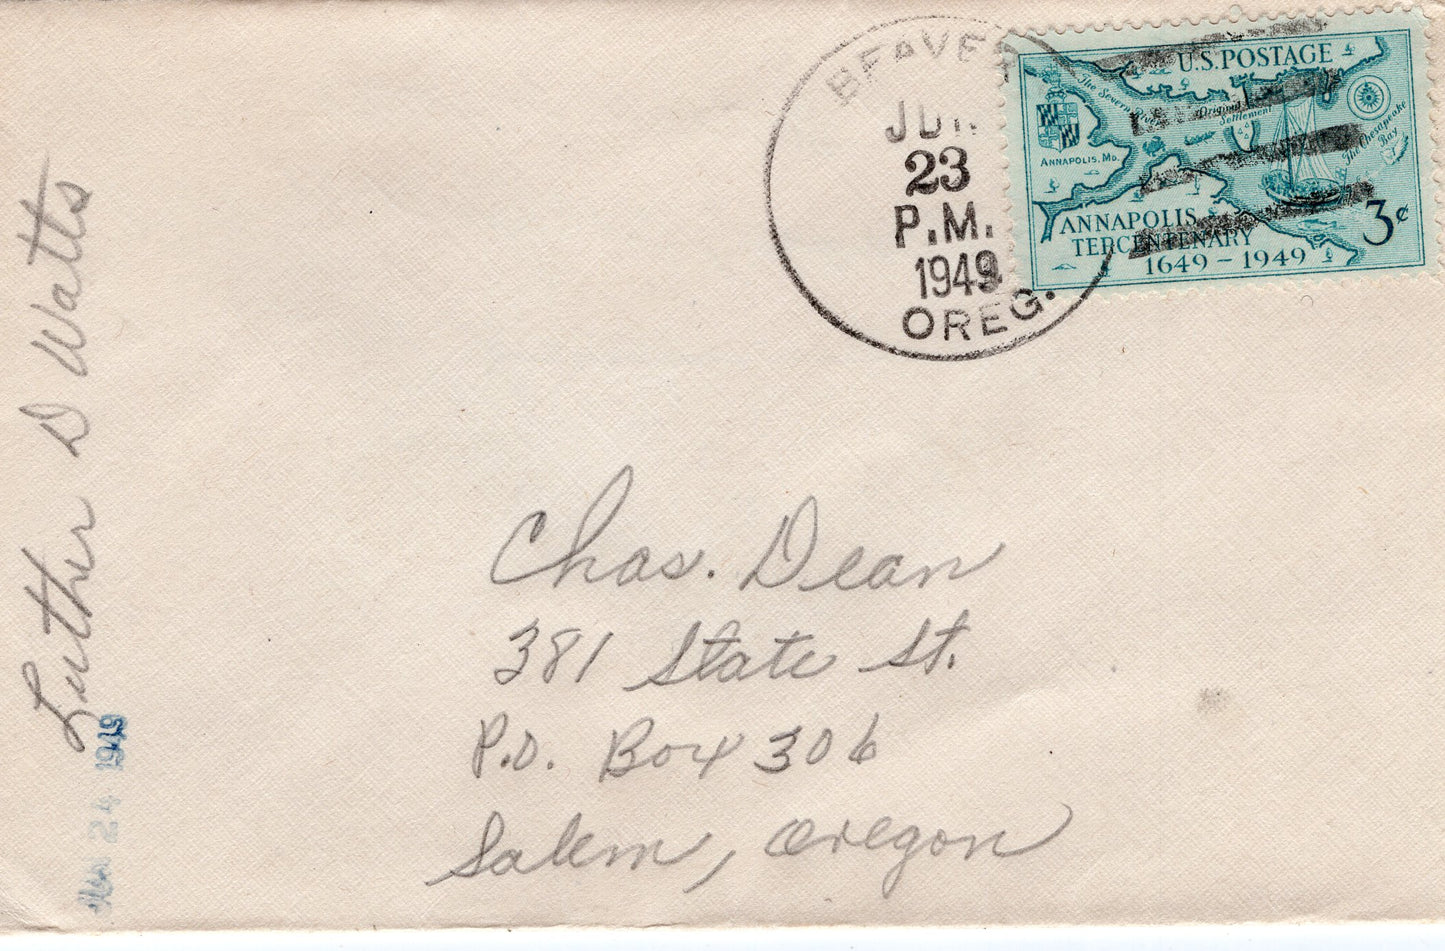 BEAVER
JUN
23
P.M.
1949
OREG.
U.S. POSTAGE
The Severn River
Original Settlement
The Chesapeake Bay
ANNAPOLIS, MD.
ANNAPOLIS
TERCENTENARY
1649 - 1949
3¢
Luther D Watts
24 1949
Chas. Dean
381 State St.
P.O. Box 306
Salem, Oregon